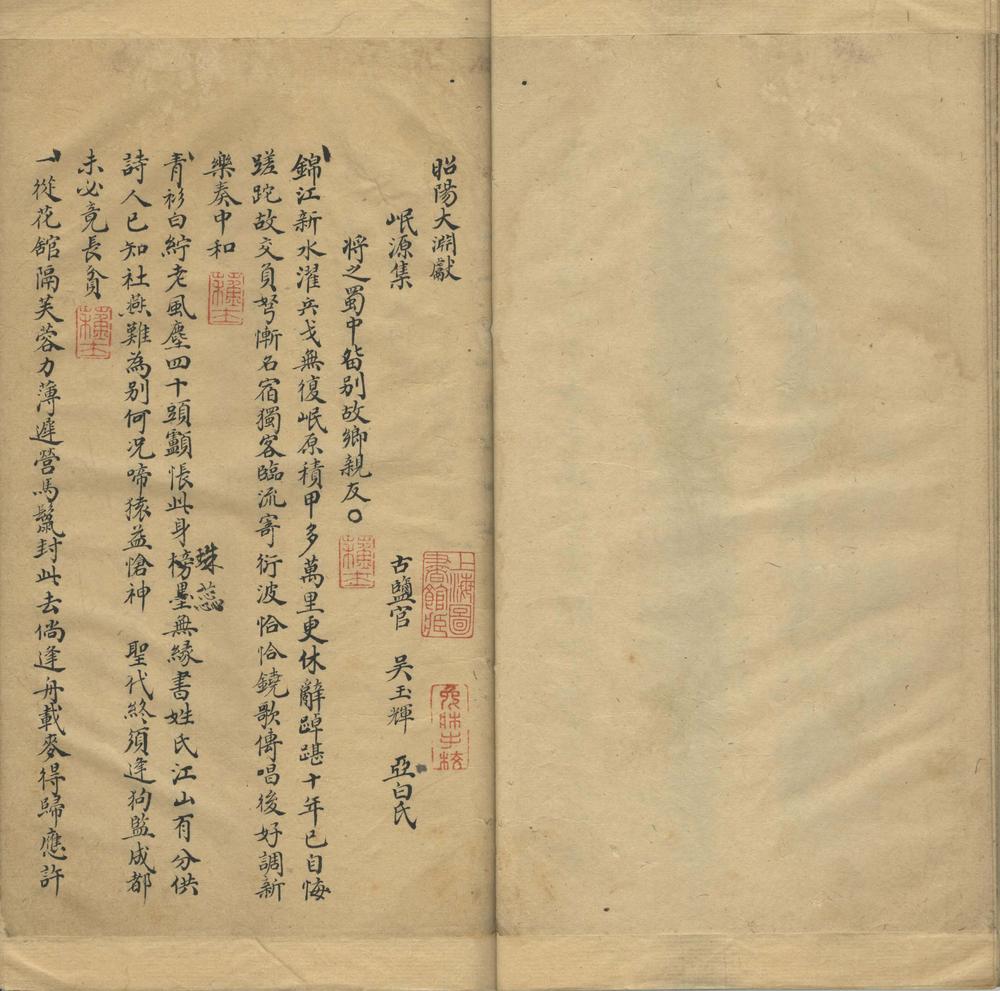 昭陽大淵獻
岷源集
古鹽官 吴玉輝 亞白氏
將之蜀中留别故鄉親友
錦江新水濯兵戈無復岷原積甲多萬里更休辭踔踸十年已自悔
蹉跎故交負弩慚名宿獨客臨流寄衍波恰恰鐃歌傳唱後好調新
樂奏中和
青衫白紵老風塵四十頭顱悵此身榜墨無緣書姓氏江山有分供
珠蕊
詩人已知社燕難為别何况啼猿益愴神 聖代終須逢狗監成都
未必竟長貧
一從花館隔芙蓉力薄遲營馬鬛封此去倘逢舟載麥得歸應許
上海圖書館藏